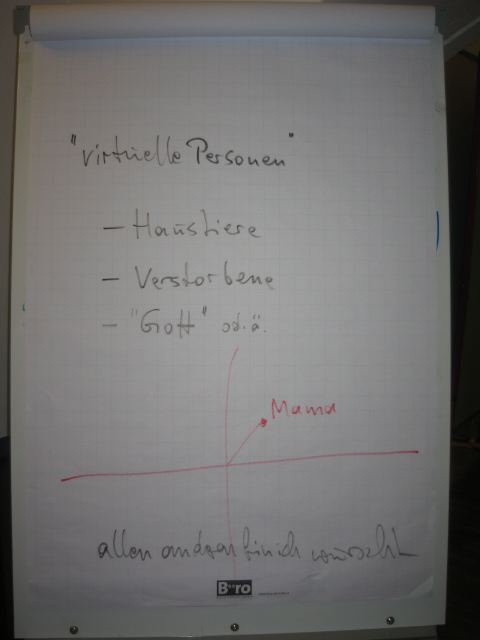 "virtuelle Personen"
- Haustiere
- Verstorbene
- "Gott" od. ä.
Mama
allen anderen bin ich wurscht
Büro